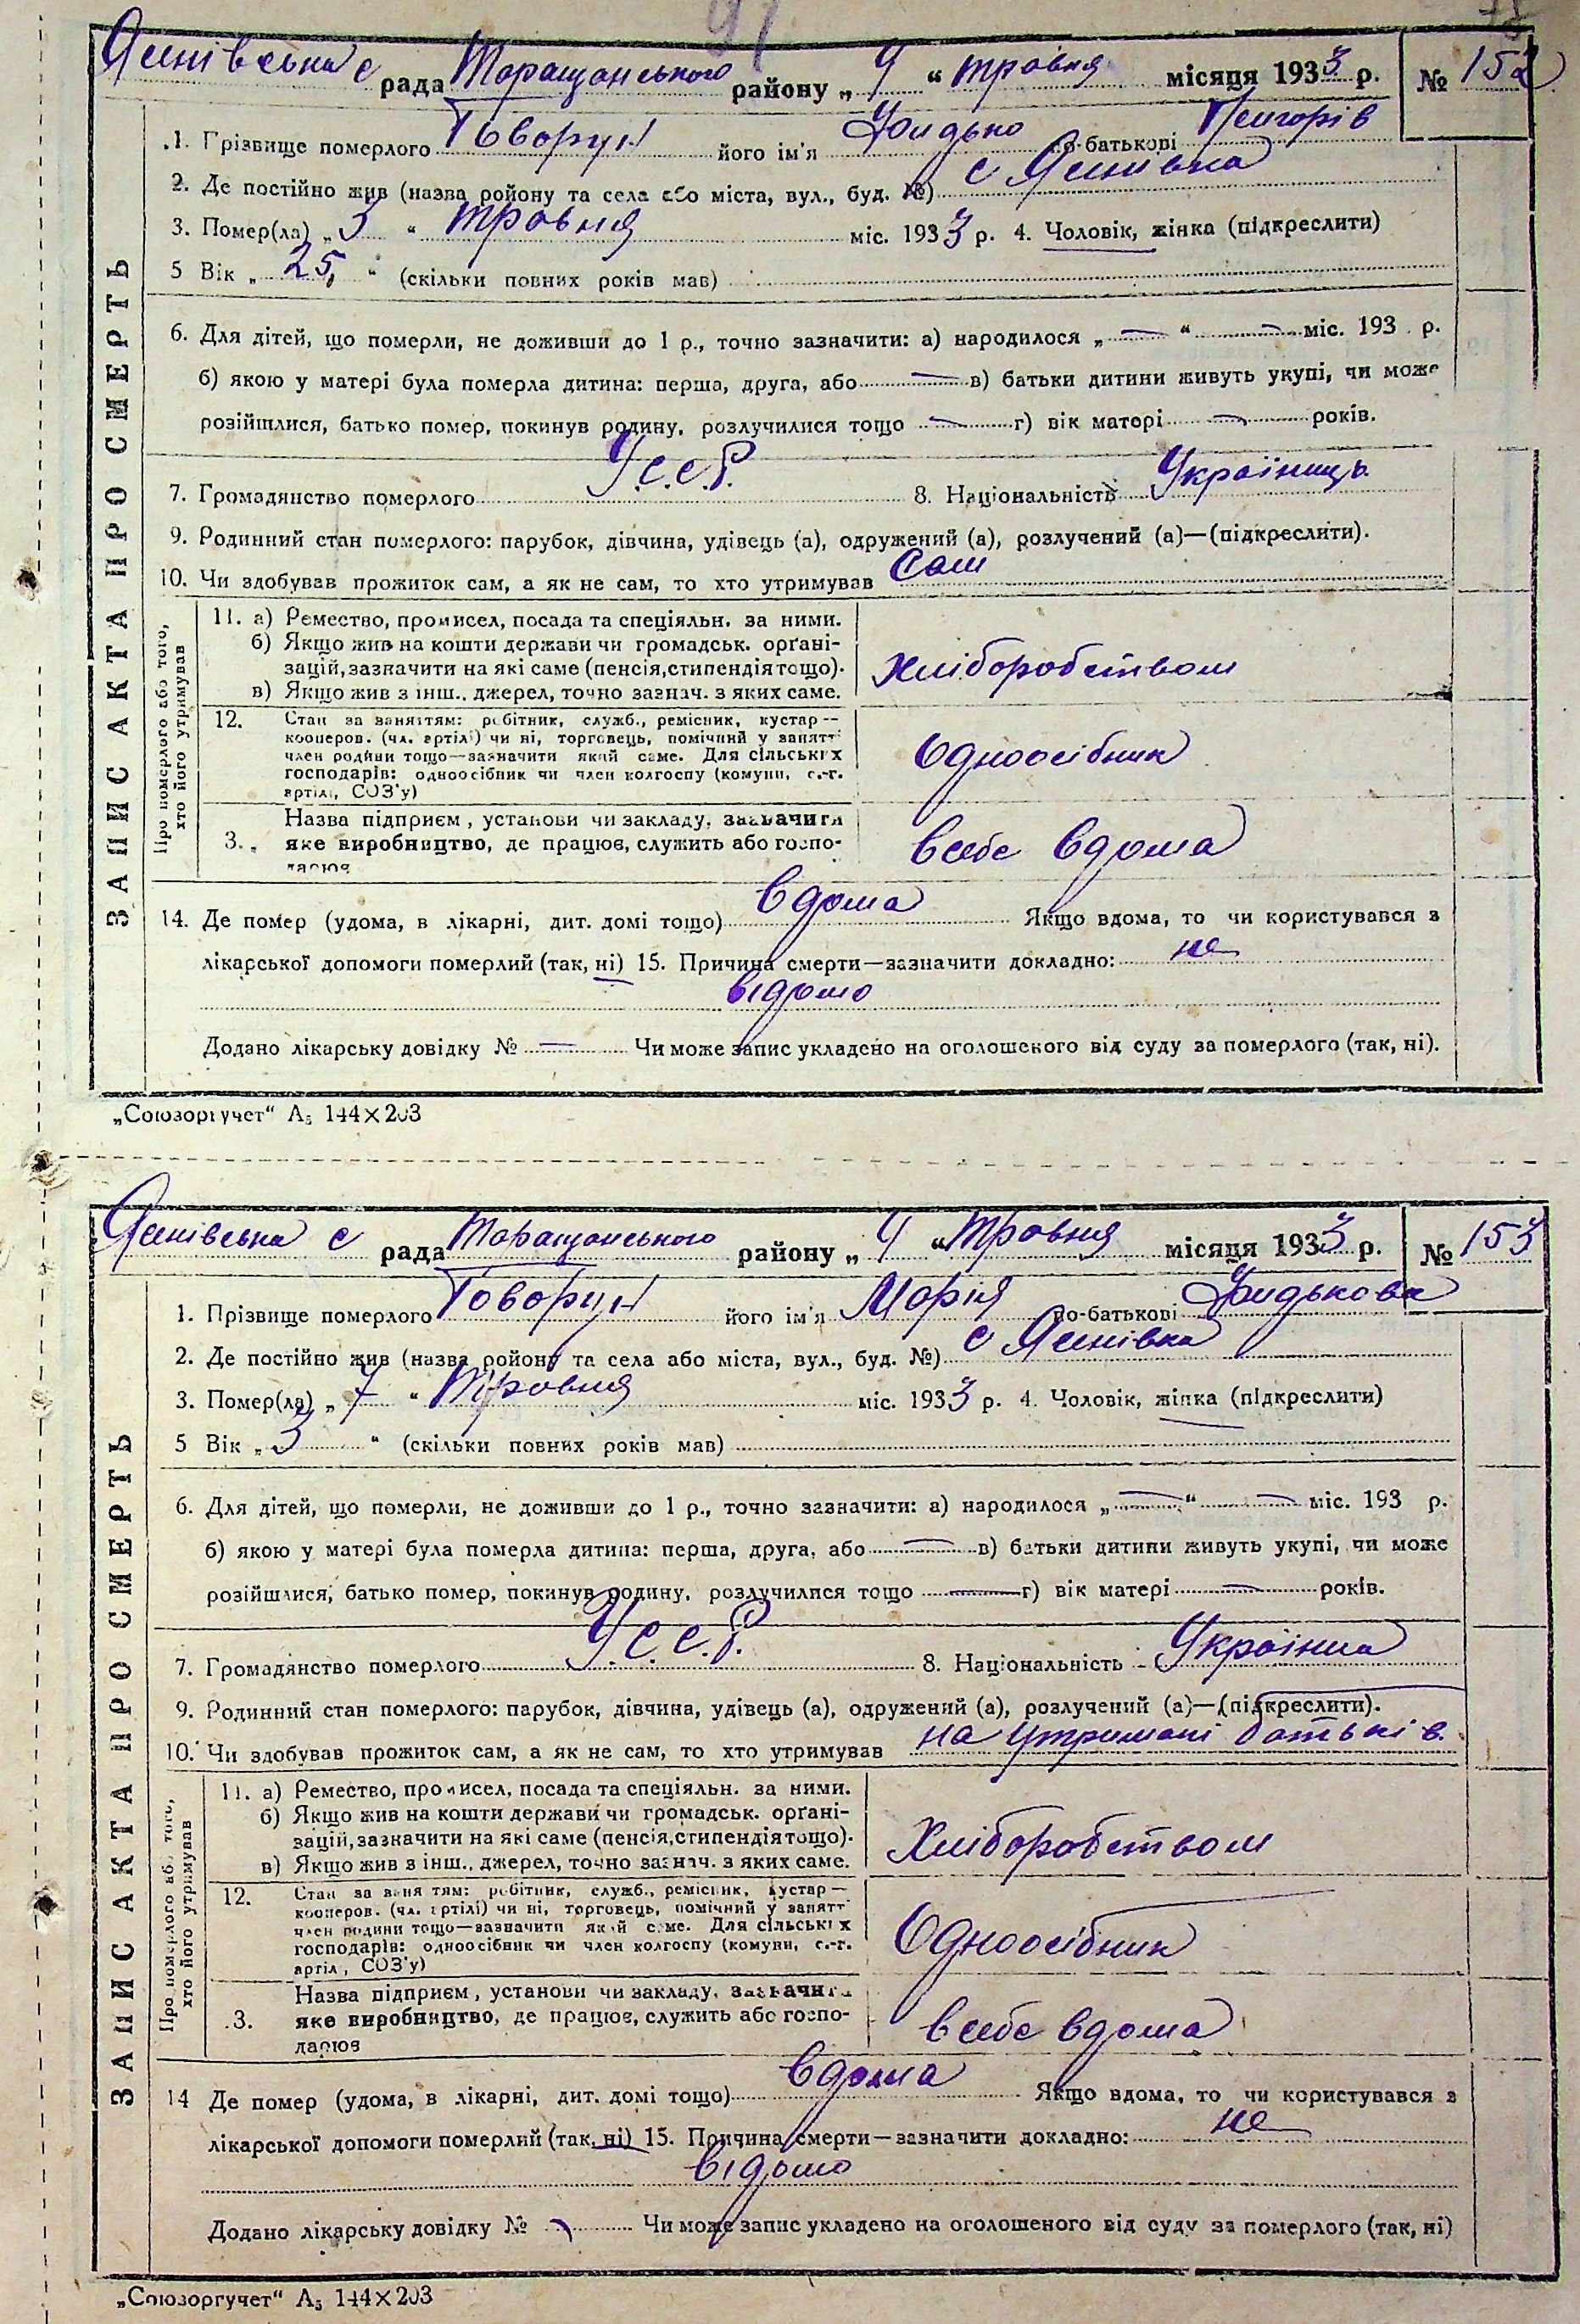 91
Яснівська с рада Таращанського району „ 9 “ травня місяця 1933 р. № 152
1. Прізвище померлого Говорун його ім'я по-батькові
2. Де постійно жив (назва району та села або міста, вул., буд. №) с Яснівка
3. Помер(ла) „ 3 “ травня міс. 1933 р. 4. Чоловік, жінка (підкреслити)
5 Вік „ 25 “ (скільки повних років мав)
6. Для дітей, що померли, не доживши до 1 р., точно зазначити: а) народилося „ — “ — міс. 193 р.
б) якою у матері була померла дитина: перша, друга, або — в) батьки дитини живуть укупі, чи може
розійшлися, батько помер, покинув родину, розлучилися тощо — г) вік матері — років.
7. Громадянство померлого У.С.С.Р. 8. Національність Українець
9. Родинний стан померлого: парубок, дівчина, удівець (а), одружений (а), розлучений (а)—(підкреслити).
10. Чи здобував прожиток сам, а як не сам, то хто утримував Сам
ЗАПИС АКТА ПРО СМЕРТЬ
Про померлого або того,
хто його утримував
11. а) Ремество, промисел, посада та спеціяльн. за ними.
б) Якщо жив на кошти держави чи громадськ. орґані-
зацій, зазначити на які саме (пенсія, стипендія тощо).
в) Якщо жив з інш., джерел, точно зазнач. з яких саме.
Хліборобством
12. Стан за заняттям: робітник, служб., ремісник, кустар —
кооперов. (чл. артілі) чи ні, торговець, помічний у занятті
член родини тощо—зазначити який саме. Для сільських
господарів: одноосібник чи член колгоспу (комуни, с.-г.
артілі, СОЗ'у)
Одноосібник
Назва підприєм., установи чи закладу, зазначити
3. яке виробництво, де працює, служить або госпо-
дарює
в себе вдома
14. Де помер (удома, в лікарні, дит. домі тощо) вдома Якщо вдома, то чи користувався з
лікарської допомоги померлий (так, ні) 15. Причина смерти—зазначити докладно: не
відомо
Додано лікарську довідку № — Чи може запис укладено на оголошеного від суду за померлого (так, ні).
„Союзоргучет“ А5 144×203
Яснівська с рада Таращанського району „ 9 “ травня місяця 1933 р. № 153
1. Прізвище померлого Говорун його ім'я Марія по-батькові
2. Де постійно жив (назва району та села або міста, вул., буд. №) с Яснівка
3. Помер(ла) „ 7 “ травня міс. 1933 р. 4. Чоловік, жінка (підкреслити)
5 Вік „ 3 “ (скільки повних років мав)
6. Для дітей, що померли, не доживши до 1 р., точно зазначити: а) народилося „ — “ — міс. 193 р.
б) якою у матері була померла дитина: перша, друга, або — в) батьки дитини живуть укупі, чи може
розійшлися, батько помер, покинув родину, розлучилися тощо — г) вік матері — років.
7. Громадянство померлого У.С.С.Р. 8. Національність Українка
9. Родинний стан померлого: парубок, дівчина, удівець (а), одружений (а), розлучений (а)—(підкреслити).
10. Чи здобував прожиток сам, а як не сам, то хто утримував на утримані батьків.
ЗАПИС АКТА ПРО СМЕРТЬ
Про померлого або того,
хто його утримував
11. а) Ремество, промисел, посада та спеціяльн. за ними.
б) Якщо жив на кошти держави чи громадськ. орґані-
зацій, зазначити на які саме (пенсія, стипендія тощо).
в) Якщо жив з інш., джерел, точно зазнач. з яких саме.
Хліборобством
12. Стан за заняттям: робітник, служб., ремісник, кустар —
кооперов. (чл. артілі) чи ні, торговець, помічний у занятті
член родини тощо—зазначити який саме. Для сільських
господарів: одноосібник чи член колгоспу (комуни, с.-г.
артіл, СОЗ'у)
Одноосібник
Назва підприєм., установи чи закладу, зазначити
3. яке виробництво, де працює, служить або госпо-
дарює
в себе вдома
14 Де помер (удома, в лікарні, дит. домі тощо) вдома Якщо вдома, то чи користувався з
лікарської допомоги померлий (так, ні) 15. Причина смерти—зазначити докладно: не
відомо
Додано лікарську довідку № — Чи може запис укладено на оголошеного від суду за померлого (так, ні)
„Союзоргучет“ А5 144×203